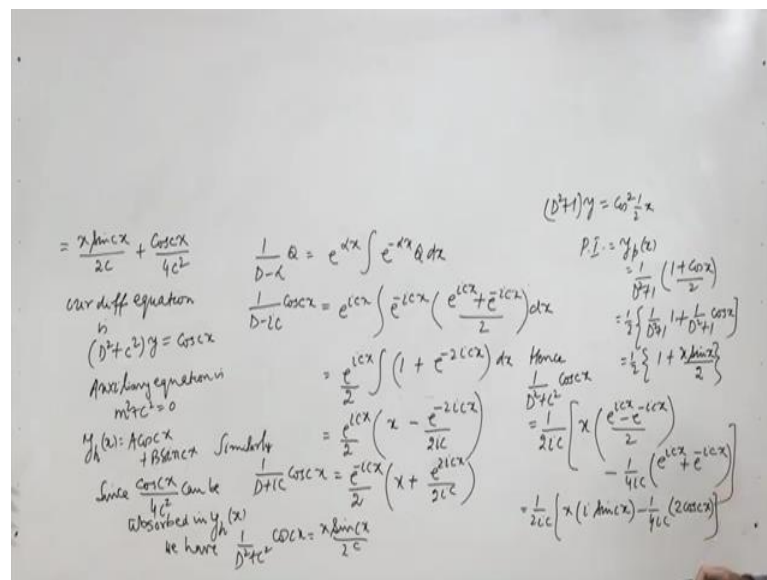 = x sin cx / 2c + cos cx / 4c²
our diff equation
is
(D²+c²) y = cos cx
Auxiliary equation is
m²+c²=0
y_h(x) = A cos cx
+ B sin cx
Since cos cx / 4c² can be
absorbed in y_h(x)
we have 1/(D²+c²) cos cx = x sin cx / 2c
1/(D-α) Q = e^{αx} ∫ e^{-αx} Q dx
1/(D-ic) cos cx = e^{icx} ∫ e^{-icx} ( (e^{icx} + e^{-icx}) / 2 ) dx
= e^{icx}/2 ∫ (1 + e^{-2icx}) dx
= e^{icx}/2 ( x - e^{-2icx}/2ic )
Similarly
1/(D+ic) cos cx = e^{-icx}/2 ( x + e^{2icx}/2ic )
(D²+1) y = cos² ½ x
P.I. = y_p(x)
= 1/(D²+1) ( (1+cos x) / 2 )
= ½ { 1/(D²+1) 1 + 1/(D²+1) cos x }
= ½ { 1 + x sin x / 2 }
Hence
1/(D²+c²) cos cx
= 1/2ic [ x ( (e^{icx} - e^{-icx}) / 2 )
- 1/4ic ( e^{icx} + e^{-icx} ) ]
= 1/2ic [ x (i sin cx) - 1/4ic (2 cos cx) ]